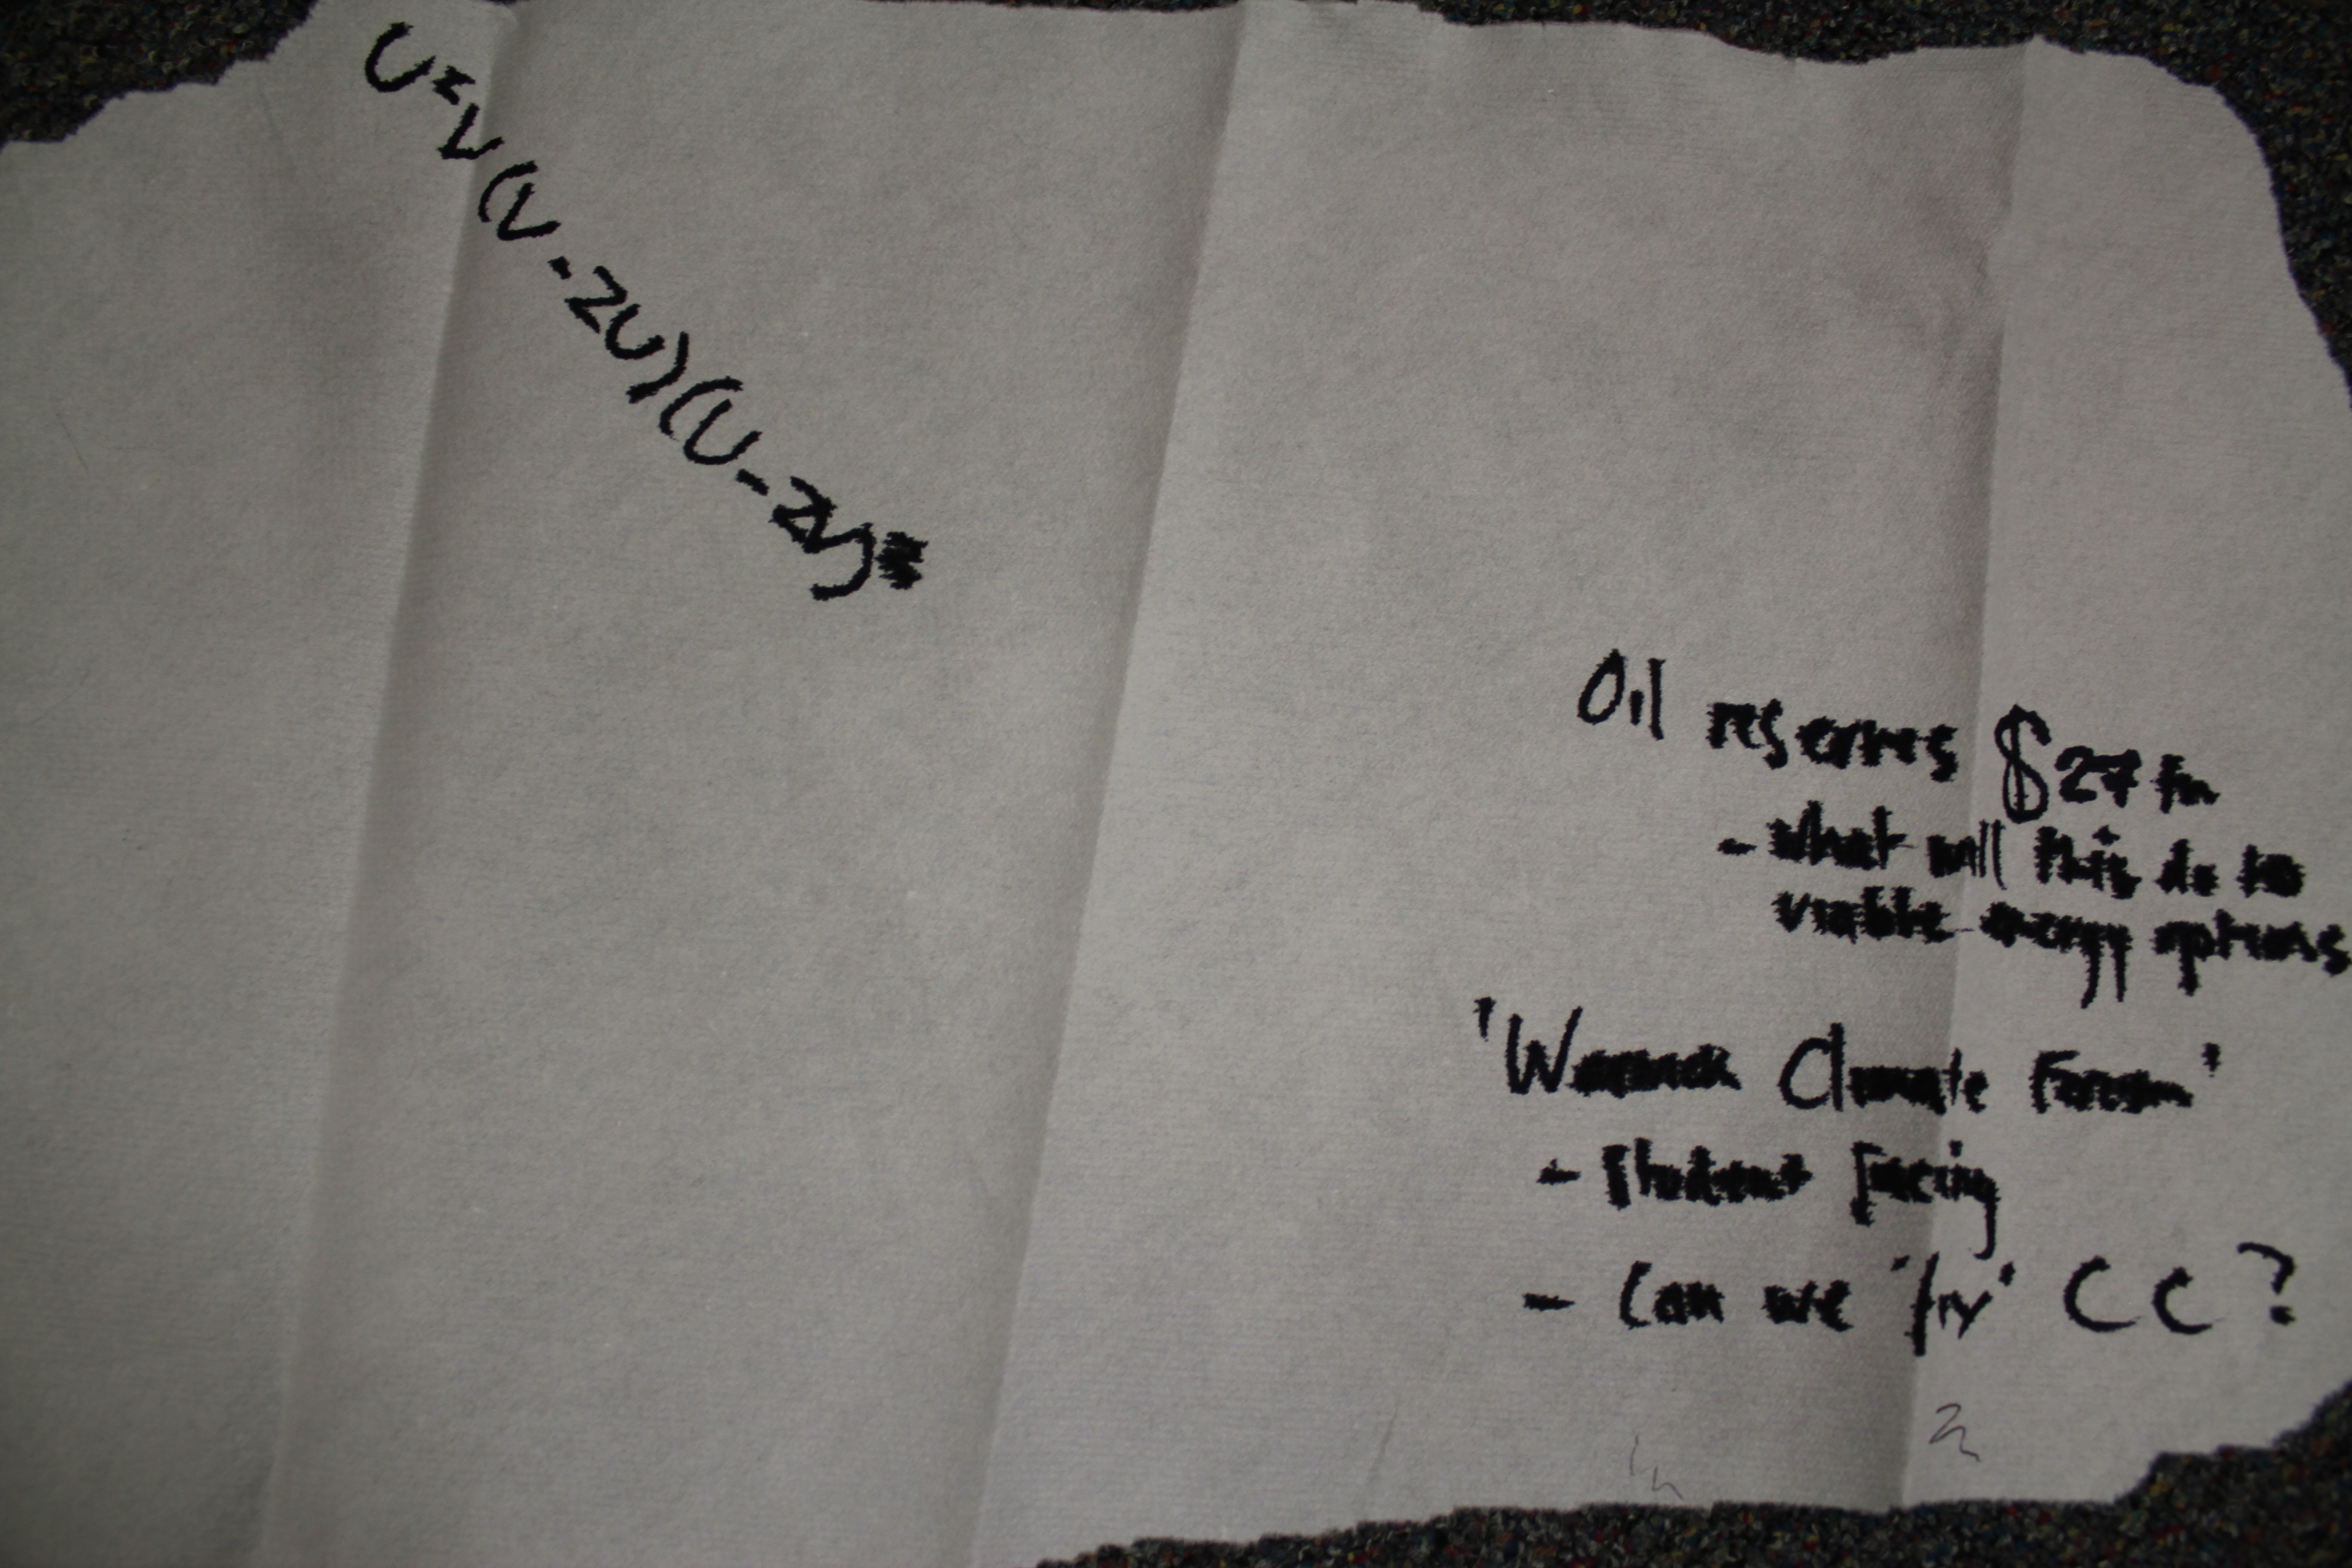 U=V(V-ZU)(U-ZV)
Oil reserves $27 tn
- what will this do to
viable energy options
'Warwick Climate Forum'
- Student facing
- Can we 'try' CC?